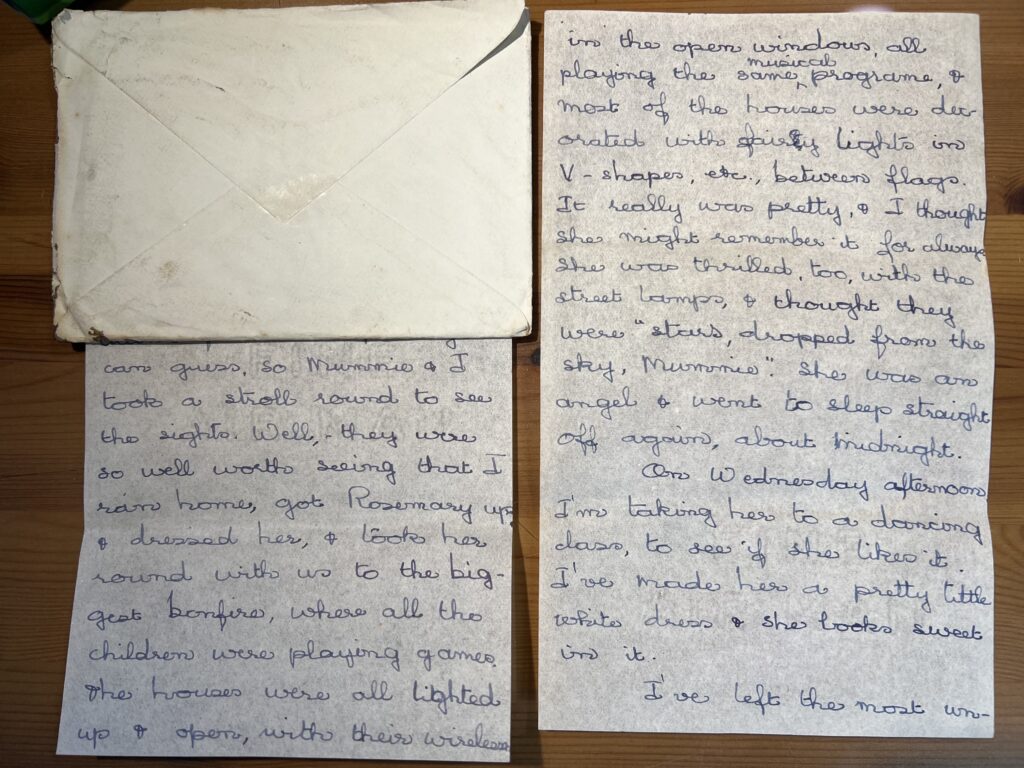 can guess, so Mummie & I
took a stroll round to see
the sights. Well,- they were
so well worth seeing that I
ran home, got Rosemary up
& dressed her, & took her
round with us to the big-
gest bonfire, where all the
children were playing games.
The houses were all lighted
up & open, with their wireless
in the open windows, all
playing the same musical programe, &
most of the houses were dec-
orated with fairy lights in
V-shapes, etc., between flags.
It really was pretty, & I thought
she might remember it for always
She was thrilled, too, with the
street lamps, & thought they
were "stars, dropped from the
sky, Mummie". She was an
angel & went to sleep straight
off again, about midnight.
On Wednesday afternoon
I'm taking her to a dancing
class, to see if she likes it.
I've made her a pretty little
white dress & she looks sweet
in it.
I've left the most un-